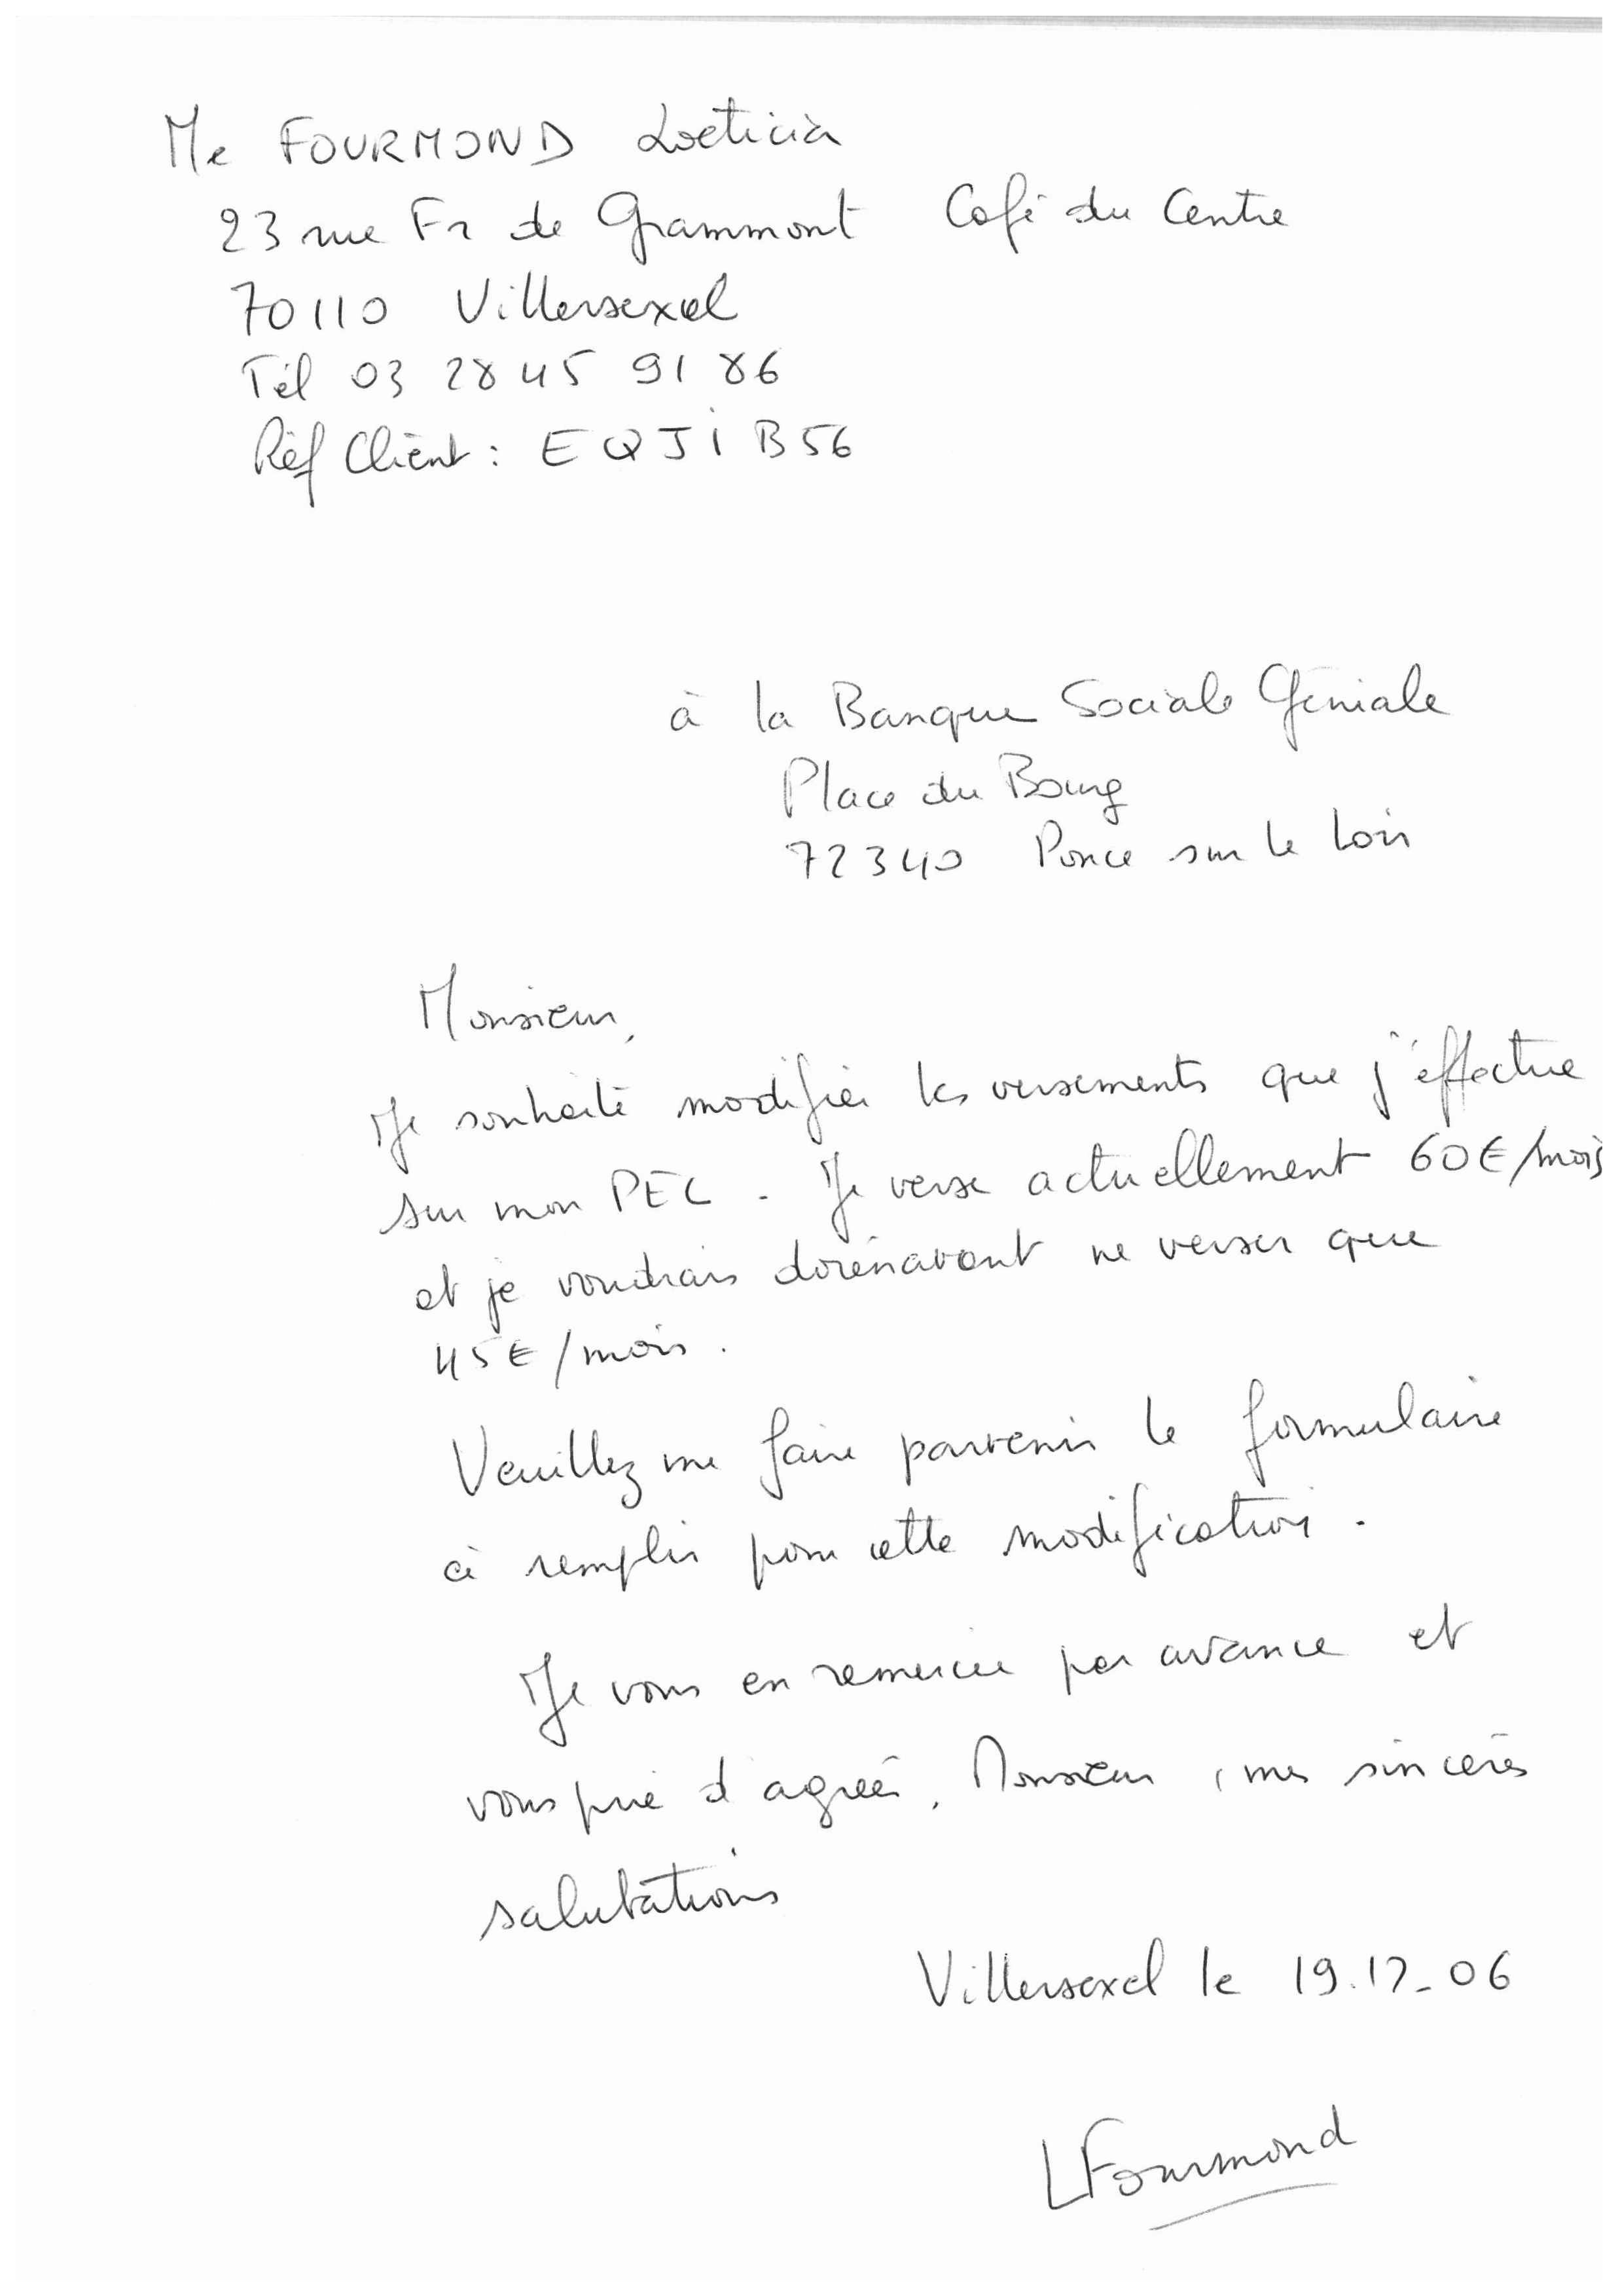 Me FOURMOND Loeticia
23 rue Fr de Grammont Café du Centre
70110 Villersexel
Tél 03 28 45 91 86
Réf Client : EQJIB56
à la Banque Sociale Géniale
Place du Bourg
72340 Ponce sur le Loir
Monsieur,
Je souhaite modifier les versements que j'effectue
sur mon PEL. Je verse actuellement 60€/mois
et je voudrais dorénavant ne verser que
45€/mois.
Veuillez me faire parvenir le formulaire
à remplir pour cette modification.
Je vous en remercie par avance et
vous prie d'agréer, Monsieur, mes sincères
salutations
Villersexel le 19.12-06
LFourmond